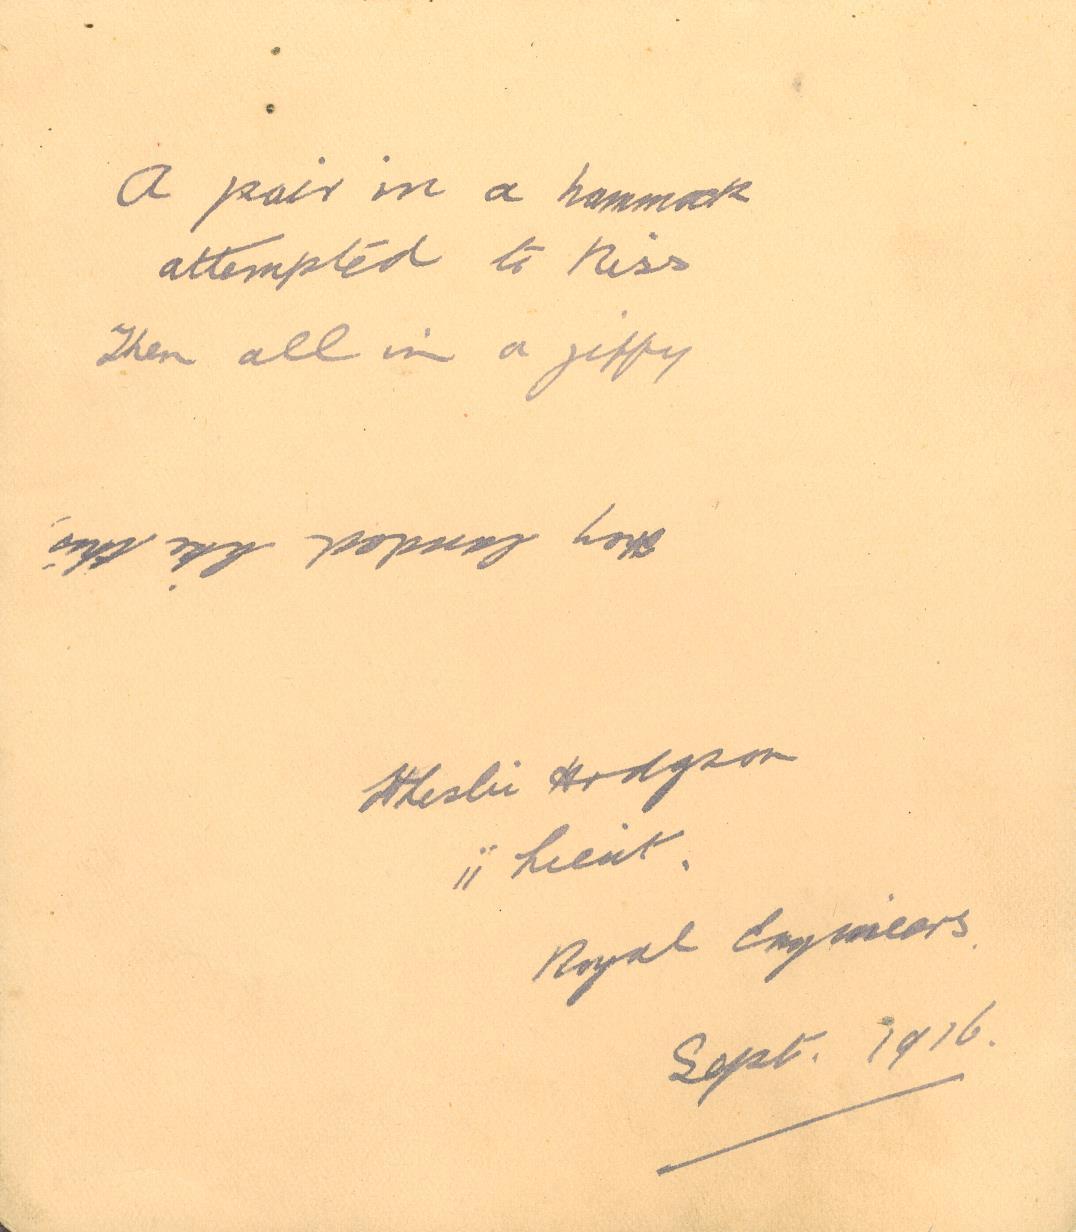 A pair in a hammock
attempted to Kiss
Then all in a jiffy
They landed like this
HLeslie Hodgson
ii Lieut.
Royal Engineers.
Sept. 1916.